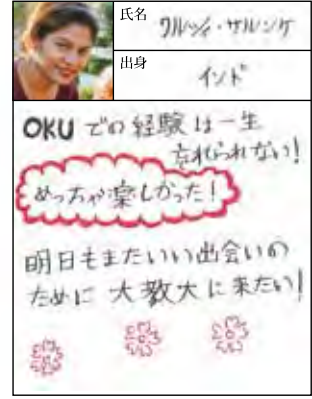 氏名
ワルシィ・サルンケ
出身
インド
OKU での経験は一生
忘れられない!
めっちゃ楽しかった!
明日もまたいい出会いの
ために大教大に来たい!